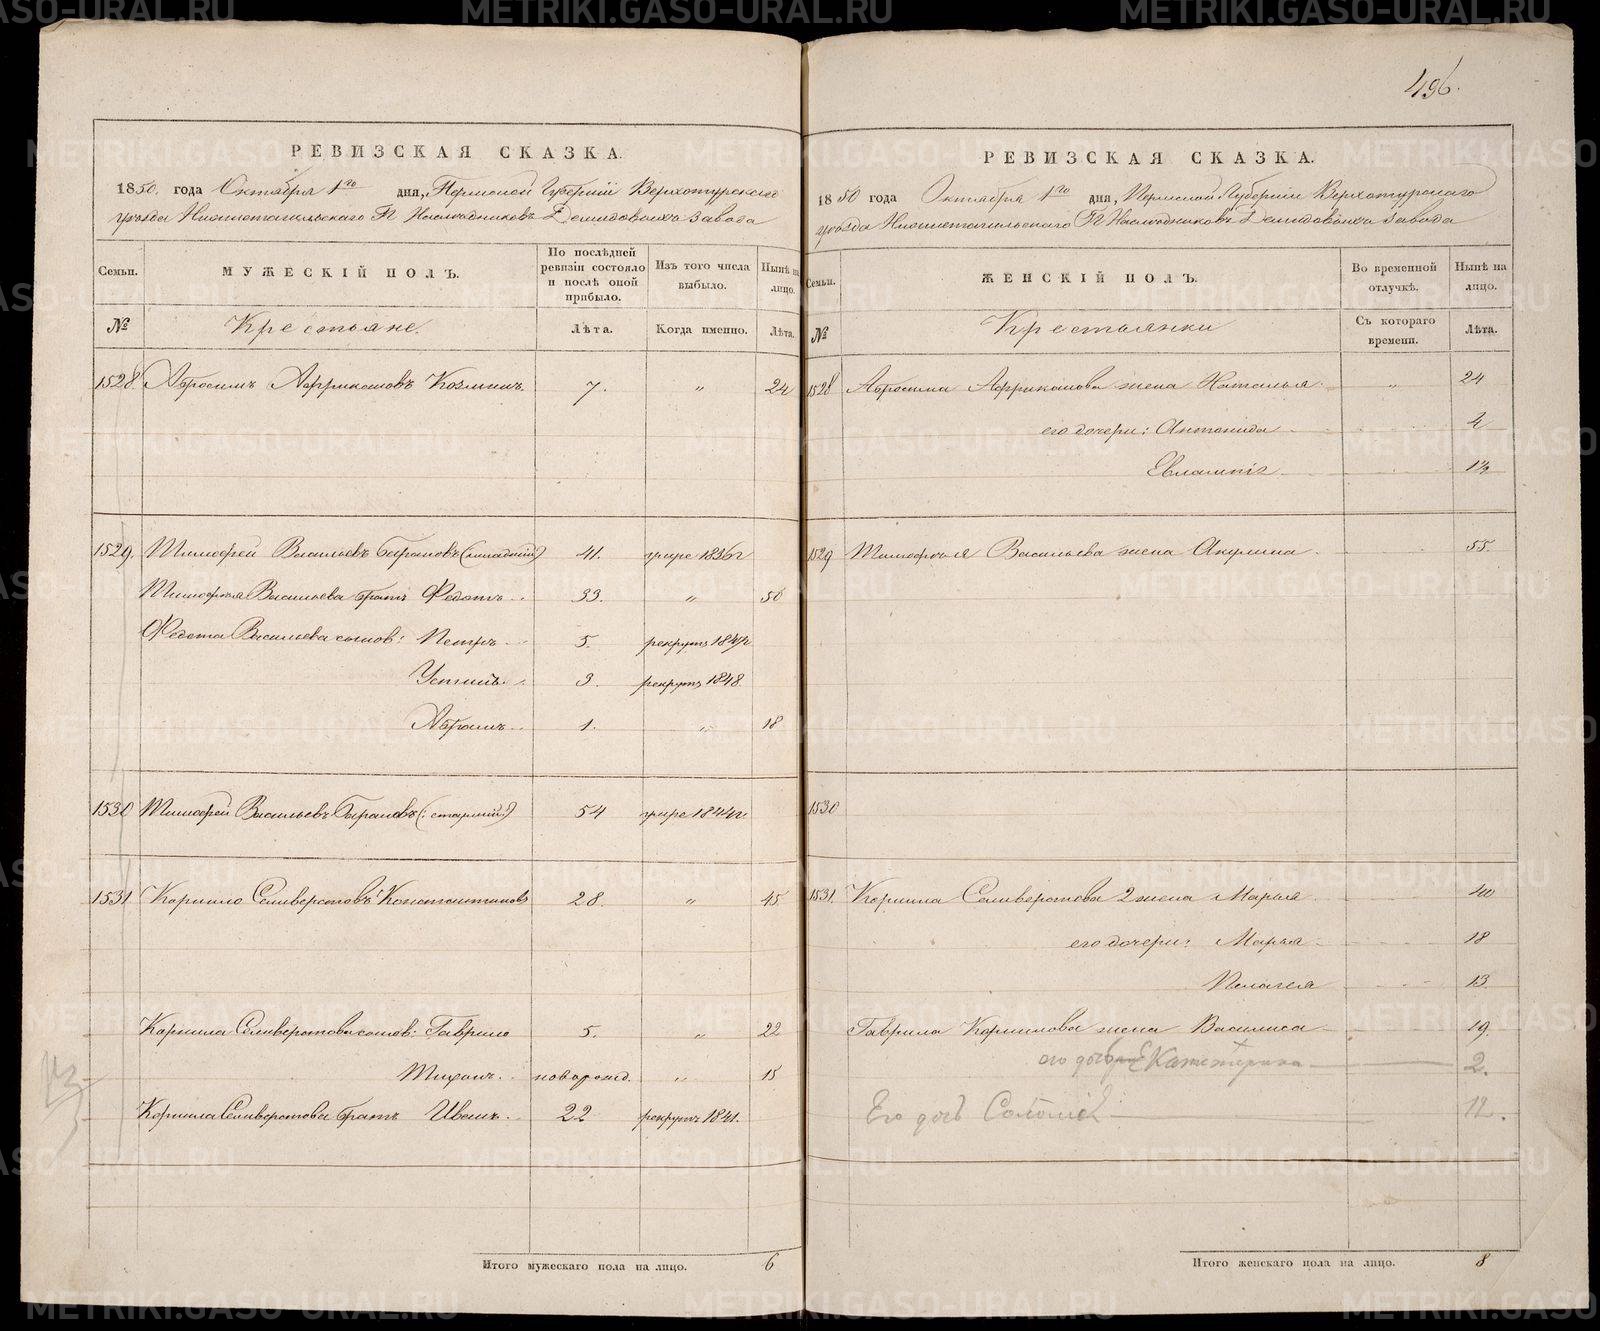 496.
РЕВИЗСКАЯ СКАЗКА.
1850. года Октября 1го дня, Пермской Губернии Верхотурского
уезда Нижнетагильского Гг Наследников Демидовых завода
Семьи. МУЖЕСКІЙ ПОЛЪ. По послѣдней ревизіи состояло и послѣ оной прибыло. Изъ того числа выбыло. Нынѣ на лицо.
№ Крестьяне. Лѣта. Когда именно. Лѣта.
1528 Абросимъ Африкановъ Козминъ. 7. " 24
1529. Тимофей Васильевъ Барановъ (младший) 41. умре 1836г
Тимофея Васильева братъ Федотъ 33. " 50
Федота Васильева сынов: Петръ 5. рекрутъ
Устинъ 3. рекрутъ 1848.
Абрамъ 1. " 18
1530 Тимофей Васильевъ Барановъ (старший) 54 умре 1844г
1531 Корнило Селиверстовъ Константинов 28. " 45
Корнила Селиверстова сынов: Гаврило 5. " 22
Тихонъ новорожд. " 15
Корнила Селиверстова братъ Иванъ 22 рекрутъ 1841.
Итого мужескаго пола на лицо. 6
РЕВИЗСКАЯ СКАЗКА.
1850 года Октября 1го дня, Пермской Губернии Верхотурского
уезда Нижнетагильского Гг Наследников Демидовых завода
Семьи. ЖЕНСКІЙ ПОЛЪ. Во временной отлучкѣ. Нынѣ на лицо.
№ Крестьянки Съ котораго времени. Лѣта.
1528 Абросима Африканова жена Наталья " 24
его дочери: Антонида 4
Евлампія 1½
1529 Тимофея Васильева жена Акулина 55.
1530
1531. Корнила Селиверстова 2 жена Марья 40
его дочери: Марья 18
Пелагея 13
Гаврила Корнилова жена Василиса 19.
его дочь Катетерина 2.
Его дочь Соломія 12.
Итого женскаго пола на лицо. 8
METRIKI.GASO-URAL.RU